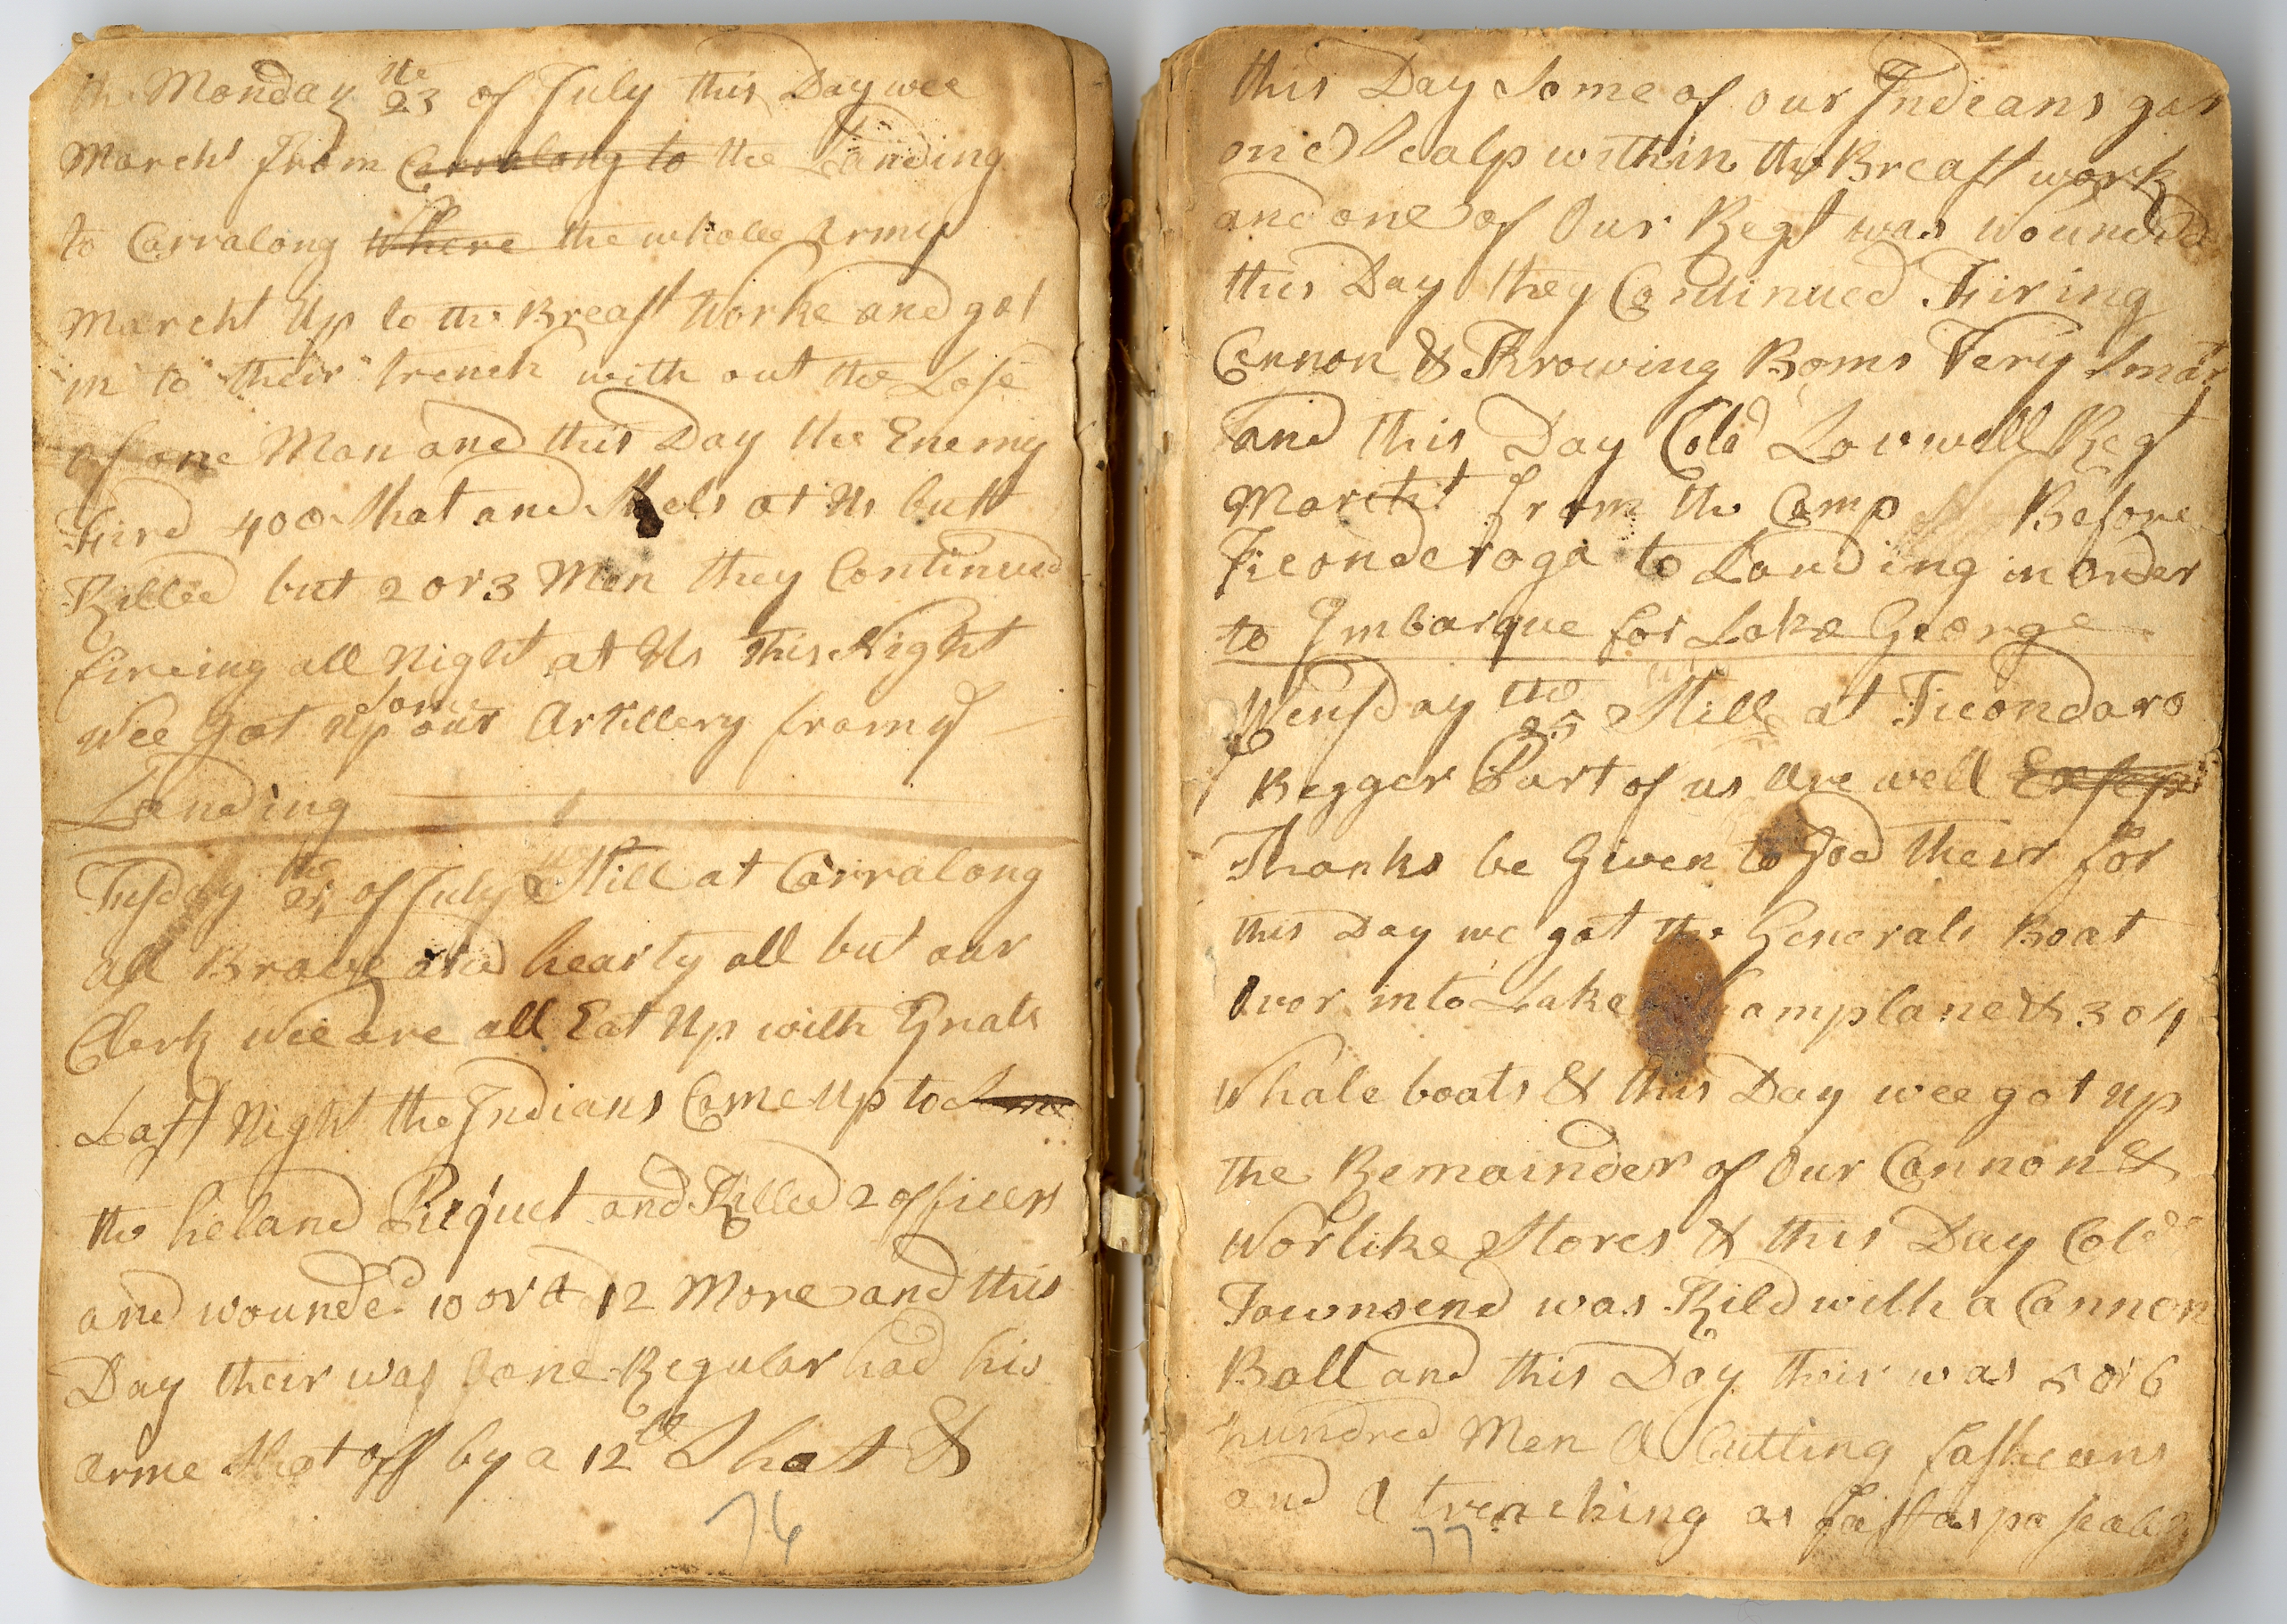 th Monday the 23 of July this Day wee
March't from Carralong to the Landing
to Carralong Where the wholee Army
March't Up to the Breast Worke and got
in to their trench with out the Lose
of one Man and this Day the Enemy
Fired 400 Shot and Shels at Us butt
Killed but 2 or 3 Men they Continued
fireing all Night at Us this Night
Wee Got Up some our Artillery from ye
Landing
Tusday the 24 of July Still at Carralong
all Brave and hearty all but our
Clerk wee are all Eat Up with Gnats
Last Night the Indians Came Up to
the heland Picquet and Killed 2 officers
and wounded 10 or a 12 More and this
Day their was one Regular had his
arme Shot off by a 12 lb Shot &
76
this Day Some of our Indians got
one Scalp within the Breast work
and one of Our Regt was wounded
this Day they Continued Firing
Cannon & Throwing Boms Very Smart
and this Day Cold Lovwell Regt
March't from the Camp Before
Ticonderoga to Landing in Order
to Imbarque for Lake George
Wensday the 25 Still at Ticondaro
Begger Part of us Are well
Thanks be Given to God their for
this Day we got the Generals Boat
Over into Lake Camplane & 304
Whale boats & this Day wee got up
the Remainder of Our Cannon &
Worlike Stores & this Day Cold
Townsend was Kild with a Cannon
Ball and this Day their was 5 or 6
hundred Men A Cutting fasheens
and A trenching as fast as poseable
77